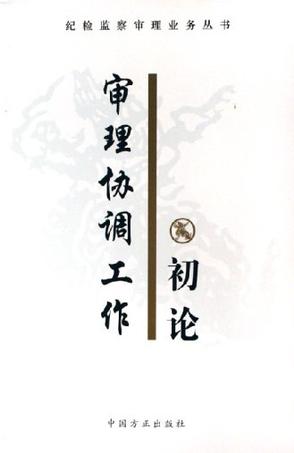 纪检监察审理业务丛书
审理协调工作
初论
中国方正出版社